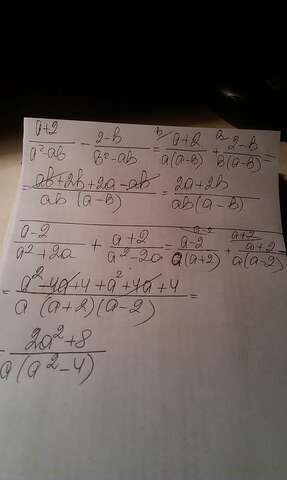 a+2/a²-ab - 2-b/b²-ab = b/ a+2/a(a-b) + a/ 2-b/b(a-b) =
= ab+2b+2a-ab/ab(a-b) = 2a+2b/ab(a-b)
a-2/a²+2a + a+2/a²-2a = a-2/ a-2/a(a+2) + a+2/ a+2/a(a-2)
= a²-4a+4+a²+4a+4/a(a+2)(a-2) =
- 2a²+8/a(a²-4)